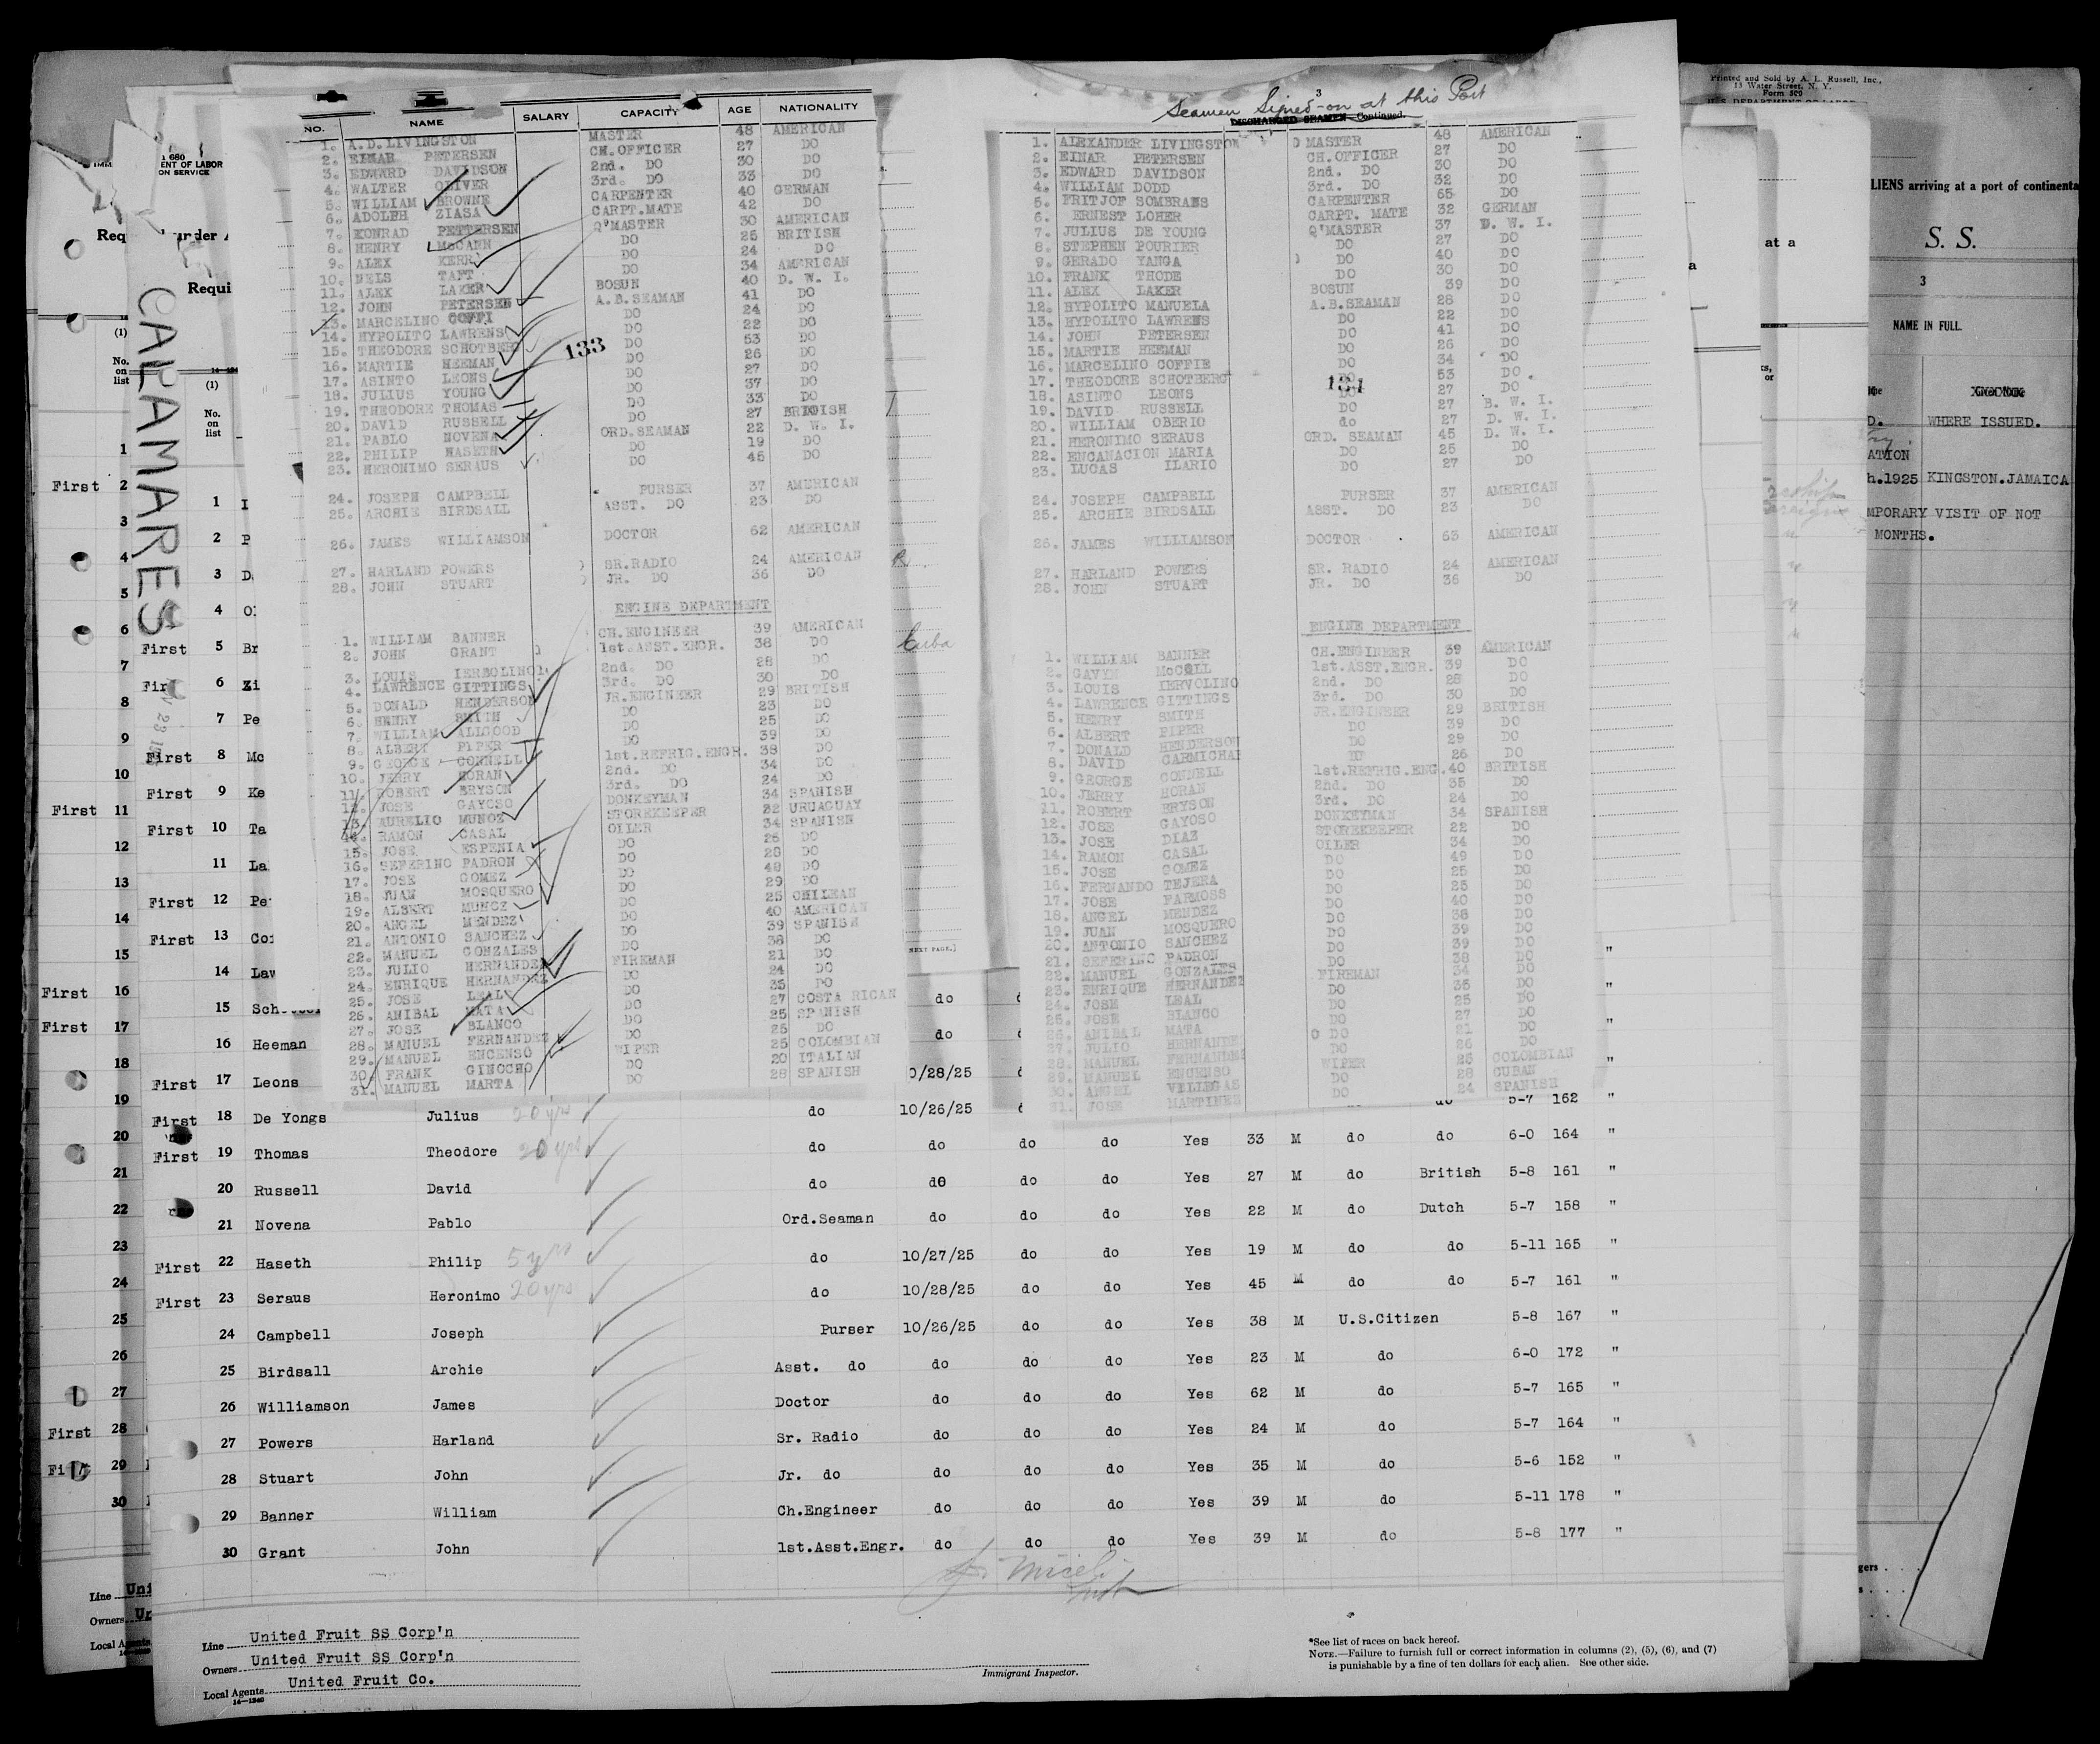 Printed and Sold by A. L. Russell, Inc.,
13 Water Street, N. Y.
Form 500
1 680
ENT OF LABOR
ON SERVICE
CALAMARES
LIENS arriving at a port of continenta
S. S.
3
NAME IN FULL.
WHERE ISSUED.
ATION
h.1925 KINGSTON.JAMAICA
MPORARY VISIT OF NOT
MONTHS.
at a
NO. NAME SALARY CAPACITY AGE NATIONALITY
1. A.D.LIVINGSTON MASTER 48 AMERICAN
2. EINAR PETERSEN CH.OFFICER 27 DO
3. EDWARD DAVIDSON 2nd. DO 30 DO
4. WALTER OLIVER 3rd. DO 33 DO
5. WILLIAM BROWNE CARPENTER 40 GERMAN
6. ADOLPH ZIASA CARPT.MATE 42 DO
7. KONRAD PETTERSEN Q'MASTER 30 AMERICAN
8. HENRY McCANN DO 25 BRITISH
9. ALEX KERR DO 24 DO
10. NELS TAFT DO 34 AMERICAN
11. ALEX LAKER BOSUN 40 D. W. I.
12. JOHN PETERSEN A.B.SEAMAN 41 DO
13. MARCELINO COFFI DO 24 DO
14. HYPOLITO LAWRENS DO 22 DO
15. THEODORE SCHOTBERG DO 53 DO
133
16. MARTIE HEEMAN DO 26 DO
17. ASINTO LEONS DO 27 DO
18. JULIUS YOUNG DO 37 DO
19. THEODORE THOMAS DO 33 DO
20. DAVID RUSSELL DO 27 BRITISH
21. PABLO NOVENA ORD.SEAMAN 22 D. W. I.
22. PHILIP HASETH DO 19 DO
23. HERONIMO SERAUS DO 45 DO
24. JOSEPH CAMPBELL PURSER 37 AMERICAN
25. ARCHIE BIRDSALL ASST. DO 23 DO
26. JAMES WILLIAMSON DOCTOR 62 AMERICAN
27. HARLAND POWERS SR.RADIO 24 AMERICAN
28. JOHN STUART JR. DO 36 DO
ENGINE DEPARTMENT
1. WILLIAM BANNER CH.ENGINEER 39 AMERICAN
2. JOHN GRANT 1st.ASST.ENGR. 38 DO
Cuba
3. LOUIS IERBOLINO 2nd. DO 28 DO
4. LAWRENCE GITTINGS 3rd. DO 30 DO
5. DONALD HENDERSON JR.ENGINEER 29 BRITISH
6. HENRY SMITH DO 23 DO
7. WILLIAM ALLGOOD DO 25 DO
8. ALBERT PIPER DO 39 DO
9. GEORGE CONNELL 1st.REFRIG.ENGR. 38 DO
10. JERRY HORAN 2nd. DO 34 DO
11. ROBERT BRYSON 3rd. DO 24 DO
12. JOSE GAYOSO DONKEYMAN 34 SPANISH
13. AURELIO MUNOZ STOREKEEPER 22 URUAGUAY
14. RAMON CASAL OILER 34 SPANISH
15. JOSE ESPENIA DO 26 DO
16. SEFERINO PADRON DO 28 DO
17. JOSE GOMEZ DO 48 DO
18. JUAN MOSQUERO DO 29 DO
19. ALBERT MUNOZ DO 25 CHILEAN
20. ANGEL MENDEZ DO 40 AMERICAN
21. ANTONIO SANCHEZ DO 39 SPANISH
22. MANUEL GONZALES DO 38 DO
23. JULIO HERNANDEZ FIREMAN 21 DO
24. ENRIQUE HERNANDEZ DO 24 DO
25. JOSE LEAL DO 35 DO
26. ANIBAL MATA DO 27 COSTA RICAN
27. JOSE BLANCO DO 25 SPANISH
28. MANUEL FERNANDEZ DO 25 DO
29. MANUEL ENCENSO WIPER 25 COLOMBIAN
30. FRANK GINOCHO DO 20 ITALIAN
31. MANUEL MARTA DO 28 SPANISH
3
Seamen Signed-on at this Port
DISCHARGED SEAMEN—Continued.
1. ALEXANDER LIVINGSTON MASTER 48 AMERICAN
2. EINAR PETERSEN CH.OFFICER 27 DO
3. EDWARD DAVIDSON 2nd. DO 30 DO
4. WILLIAM DODD 3rd. DO 32 DO
5. FRITJOF SOMBRANS CARPENTER 65 DO
6. ERNEST LOHER CARPT. MATE 32 GERMAN
7. JULIUS DE YOUNG Q'MASTER 37 D. W. I.
8. STEPHEN POURIER DO 27 DO
9. GERADO YANGA DO 40 DO
10. FRANK THODE DO 30 DO
11. ALEX LAKER BOSUN 39 DO
12. HYPOLITO MANUELA A.B.SEAMAN 28 DO
13. HYPOLITO LAWRENS DO 22 DO
14. JOHN PETERSEN DO 41 DO
15. MARTIE HEEMAN DO 26 DO
16. MARCELINO COFFIE DO 34 DO
17. THEODORE SCHOTBERG DO 53 DO
18. ASINTO LEONS DO 27 DO
19. DAVID RUSSELL DO 27 B. W. I.
20. WILLIAM OBERIO do 27 D. W. I.
21. HERONIMO SERAUS ORD. SEAMAN 45 D. W. I.
22. ENCANACION MARIA DO 25 DO
23. LUCAS ILARIO DO 27 DO
24. JOSEPH CAMPBELL PURSER 37 AMERICAN
25. ARCHIE BIRDSALL ASST. DO 23 DO
26. JAMES WILLIAMSON DOCTOR 63 AMERICAN
27. HARLAND POWERS SR. RADIO 24 AMERICAN
28. JOHN STUART JR. DO 36 DO
ENGINE DEPARTMENT
1. WILLIAM BANNER CH.ENGINEER 39 AMERICAN
2. GAVYN McCOLL 1st.ASST.ENGR. 39 DO
3. LOUIS IERVOLINO 2nd. DO 28 DO
4. LAWRENCE GITTINGS 3rd. DO 30 DO
5. HENRY SMITS JR.ENGINEER 29 BRITISH
6. ALBERT PIPER DO 39 DO
7. DONALD HENDERSON DO 29 DO
8. DAVID CARMICHAE 26 DO
9. GEORGE CONNELL 1st.REFRIG.ENG. 40 BRITISH
10. JERRY HORAN 2nd. DO 35 DO
11. ROBERT BRYSON 3rd. DO 24 DO
12. JOSE GAYOSO DONKEYMAN 34 SPANISH
13. JOSE DIAZ STOREKEEPER 22 DO
14. RAMON CASAL OILER 34 DO
15. JOSE GOMEZ DO 49 DO
16. FERNANDO TEJERA DO 25 DO
17. JOSE FARMOSS DO 25 DO
18. ANGEL MENDEZ DO 40 DO
19. JUAN MOSQUERO DO 38 DO
20. ANTONIO SANCHEZ DO 39 DO
21. SEFERINO PADRON DO 39 DO
22. MANUEL GONZALES DO 38 DO
23. ENRIQUE HERNANDEZ FIREMAN 34 DO
24. JOSE LEAL DO 35 DO
25. JOSE BLANCO DO 25 DO
26. ANIBAL MATA DO 27 DO
27. JULIO HERNANDE DO 21 DO
28. MANUEL FERNANDEZ DO 26 DO
29. MANUEL ENCENSO WIPER 26 COLOMBIAN
30. ANGEL VILLEGAS DO 28 CUBAN
31. JOSE MARTINEZ DO 24 SPANISH
16 Heeman
First 17 Leons
First 18 De Yongs Julius 20 yrs do 10/26/25 5-7 162 "
First 19 Thomas Theodore 20 yrs do do do do Yes 33 M do do 6-0 164 "
20 Russell David do do do do Yes 27 M do British 5-8 161 "
21 Novena Pablo Ord.Seaman do do do Yes 22 M do Dutch 5-7 158 "
First 22 Haseth Philip 5 yrs do 10/27/25 do do Yes 19 M do do 5-11 165 "
First 23 Seraus Heronimo 20 yrs do 10/28/25 do do Yes 45 M do do 5-7 161 "
24 Campbell Joseph Purser 10/26/25 do do Yes 38 M U.S.Citizen 5-8 167 "
25 Birdsall Archie Asst. do do do do Yes 23 M do 6-0 172 "
26 Williamson James Doctor do do do Yes 62 M do 5-7 165 "
27 Powers Harland Sr. Radio do do do Yes 24 M do 5-7 164 "
28 Stuart John Jr. do do do do Yes 35 M do 5-6 152 "
29 Banner William Ch.Engineer do do do Yes 39 M do 5-11 178 "
30 Grant John 1st.Asst.Engr. do do do Yes 39 M do 5-8 177 "
Line United Fruit SS Corp'n
Owners United Fruit SS Corp'n
Local Agents United Fruit Co.
14—1240
Immigrant Inspector.
*See list of races on back hereof.
NOTE.—Failure to furnish full or correct information in columns (2), (5), (6), and (7)
is punishable by a fine of ten dollars for each alien. See other side.